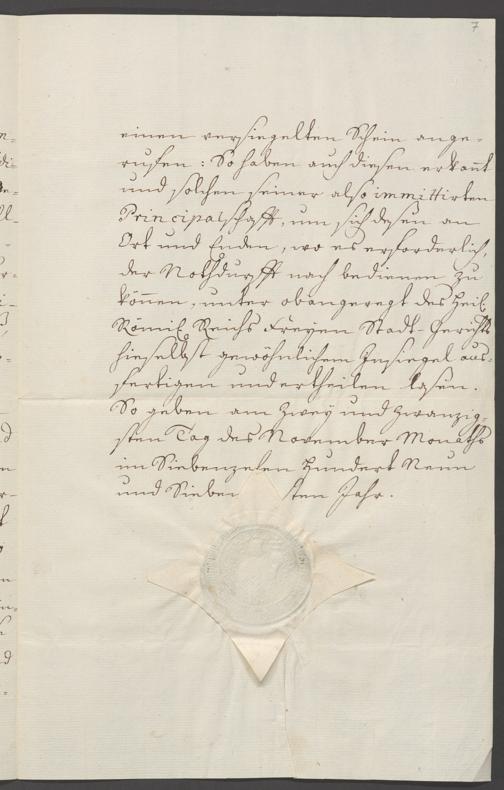 7
einen versiegelten Schein ange-
rufen: So haben auch diesen erkant
und solchen seiner also immittirten
Principalschafft, um sich desen an
Ort und Enden, wo es erforderlich,
der Nothdurfft nach bedienen zu
können, unter obangeregt des Heil.
Römil. Reichs Freyen Stadt-Gerichts
hieselbst gewöhnlichem Insiegel aus-
fertigen und ertheilen lasen.
So geben am Zwey und Zwanzig-
sten Tag des November Monaths
im Siebenzehen Hundert Neun
und Sieben sten Jahr.